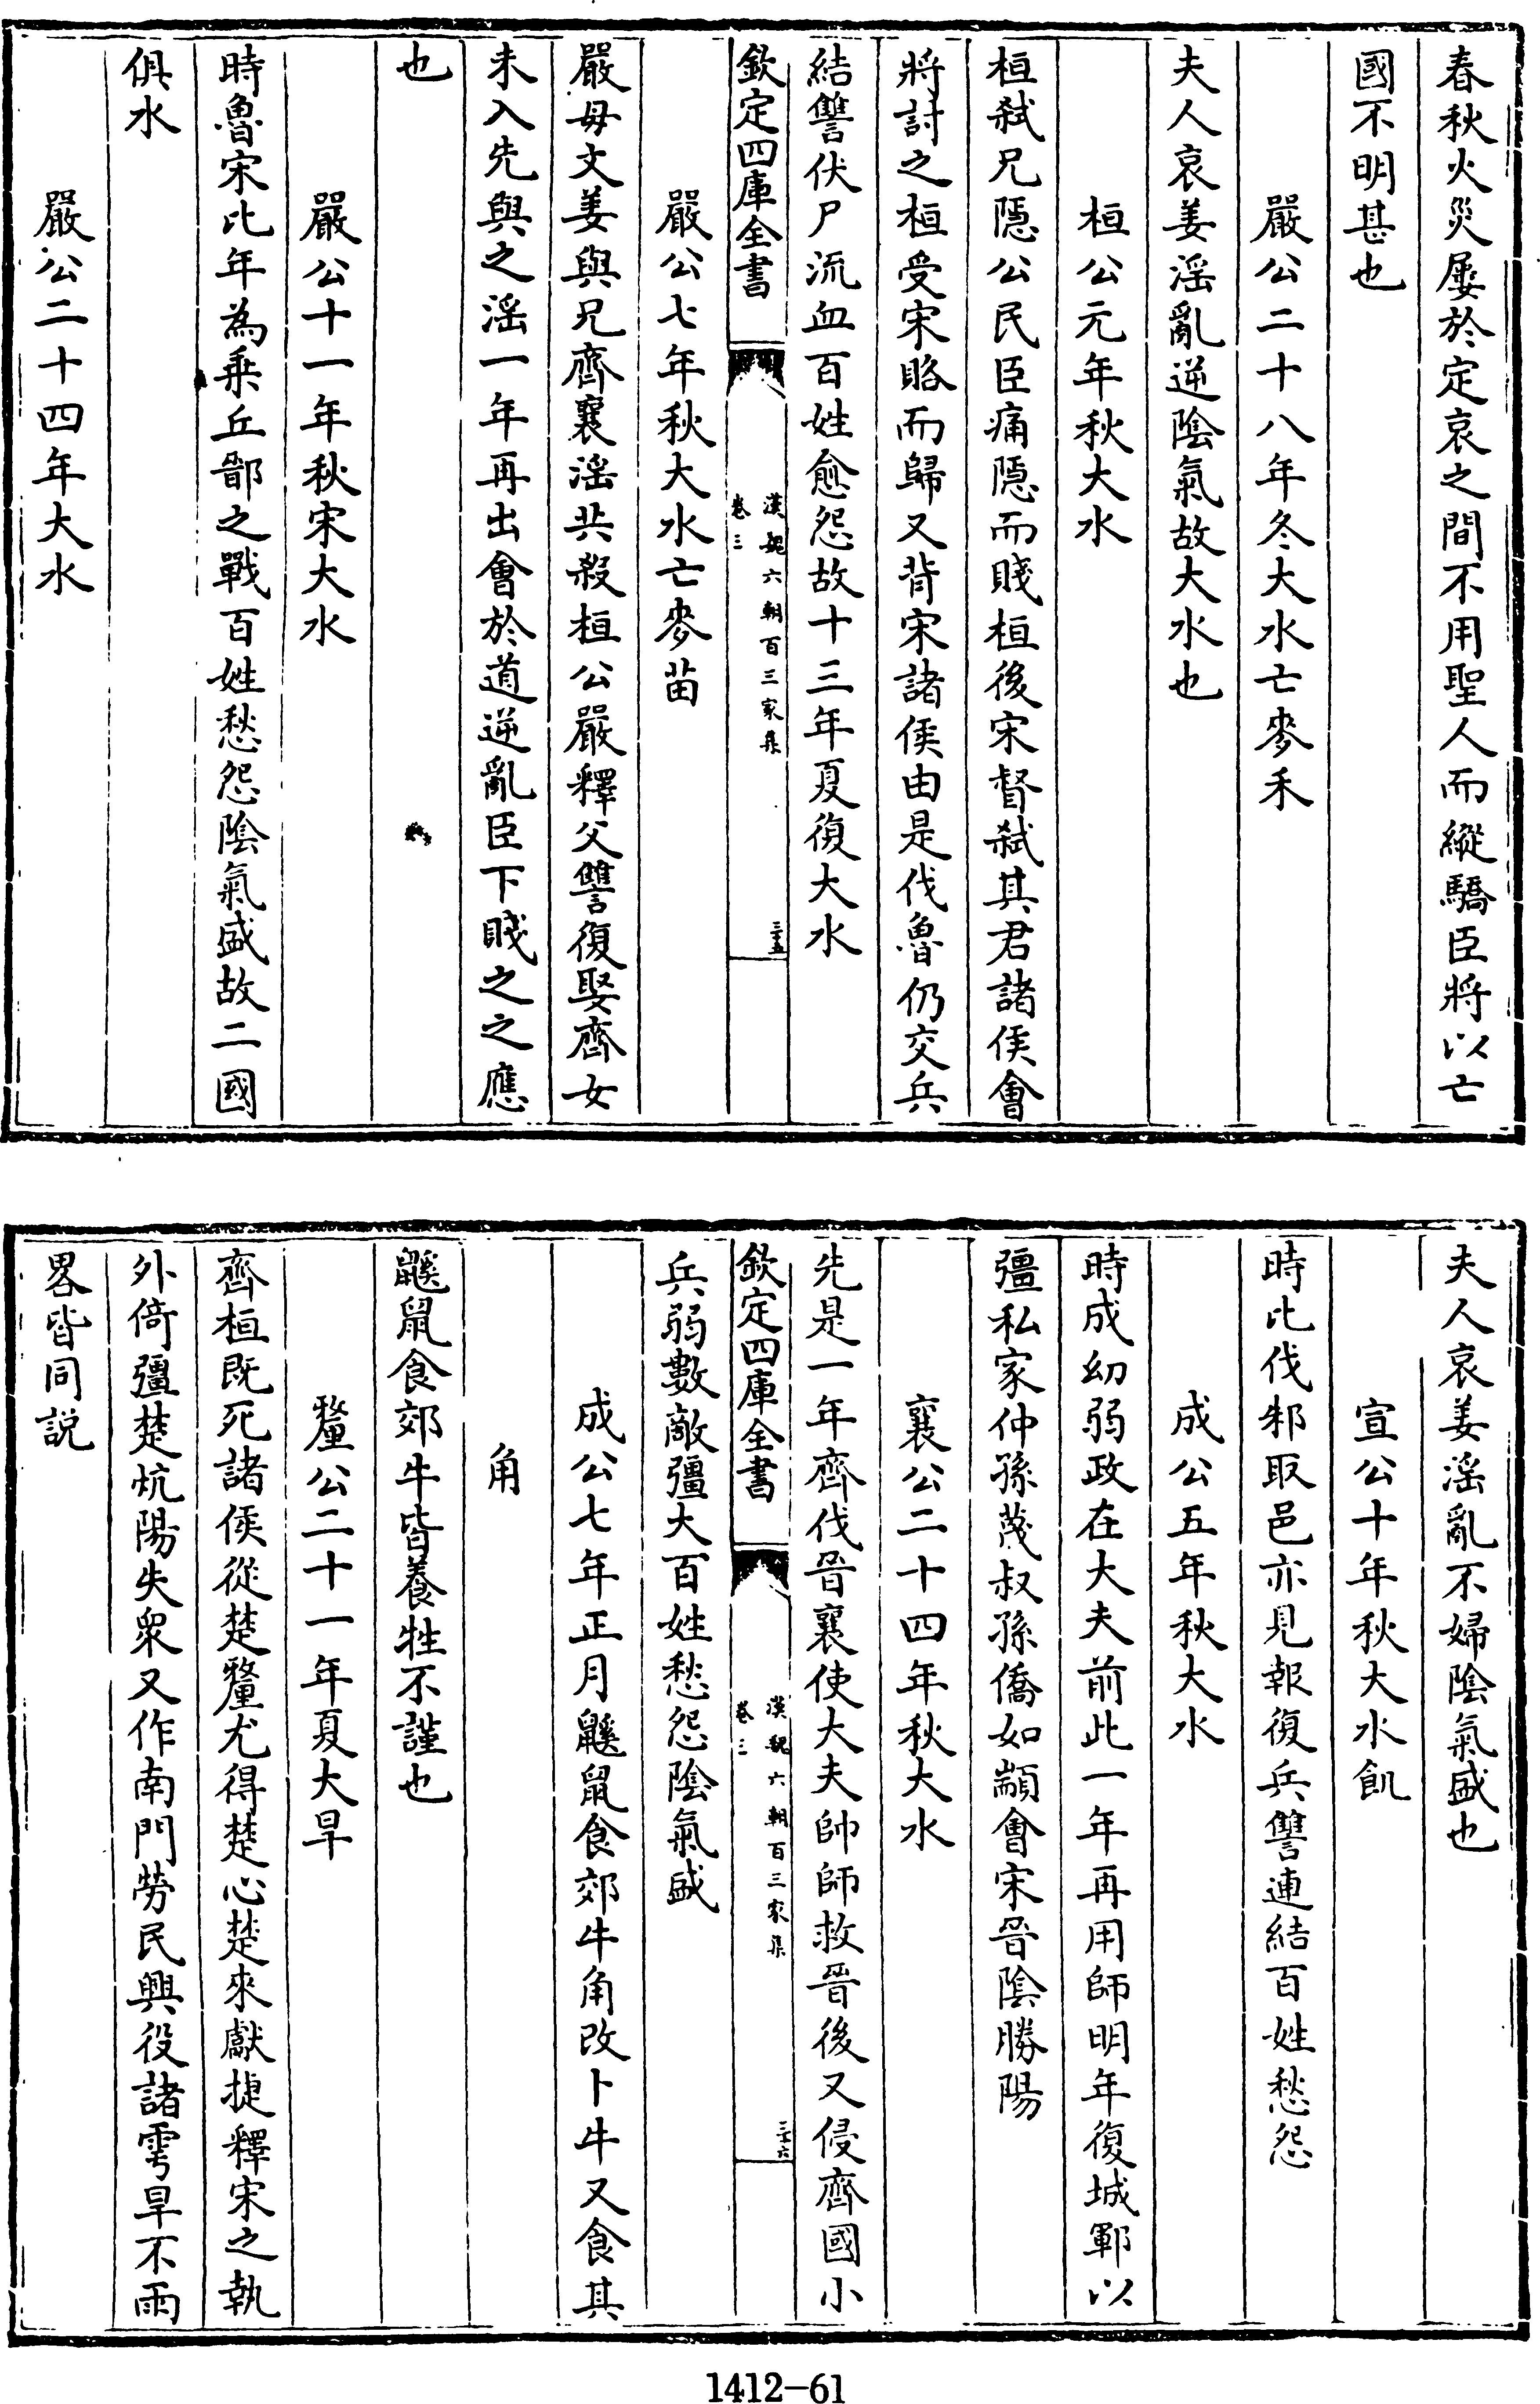 春秋火災屢於定哀之間不用聖人而縱驕臣將以亡
國不明甚也
嚴公二十八年冬大水亡麥禾
夫人哀姜淫亂逆陰氣故大水也
桓公元年秋大水
桓弑兄隱公民臣痛隱而賤桓後宋督弑其君諸侯會
將討之桓受宋賂而歸又背宋諸侯由是伐魯仍交兵
結讐伏尸流血百姓愈怨故十三年夏復大水
欽定四庫全書
漢魏六朝百三家集
卷三
三十五
嚴公七年秋大水亡麥苗
嚴母文姜與兄齊襄淫共殺桓公嚴釋父讐復娶齊女
未入先與之淫一年再出會於道逆亂臣下賤之之應
也
嚴公十一年秋宋大水
時魯宋比年為乗丘鄑之戰百姓愁怨陰氣盛故二國
俱水
嚴公二十四年大水
夫人哀姜淫亂不婦陰氣盛也
宣公十年秋大水飢
時比伐邾取邑亦見報復兵讐連結百姓愁怨
成公五年秋大水
時成幼弱政在大夫前此一年再用師明年復城鄆以
彊私家仲孫蔑叔孫僑如顓會宋晉陰勝陽
襄公二十四年秋大水
先是一年齊伐晉襄使大夫帥師救晉後又侵齊國小
欽定四庫全書
漢魏六朝百三家集
卷三
三十六
兵弱數敵彊大百姓愁怨陰氣盛
成公七年正月鼷鼠食郊牛角改卜牛又食其
角
鼷鼠食郊牛皆養牲不謹也
釐公二十一年夏大旱
齊桓既死諸侯從楚釐尤得楚心楚來獻捷釋宋之執
外倚彊楚炕陽失衆又作南門勞民興役諸雩旱不雨
畧皆同説
1412-61